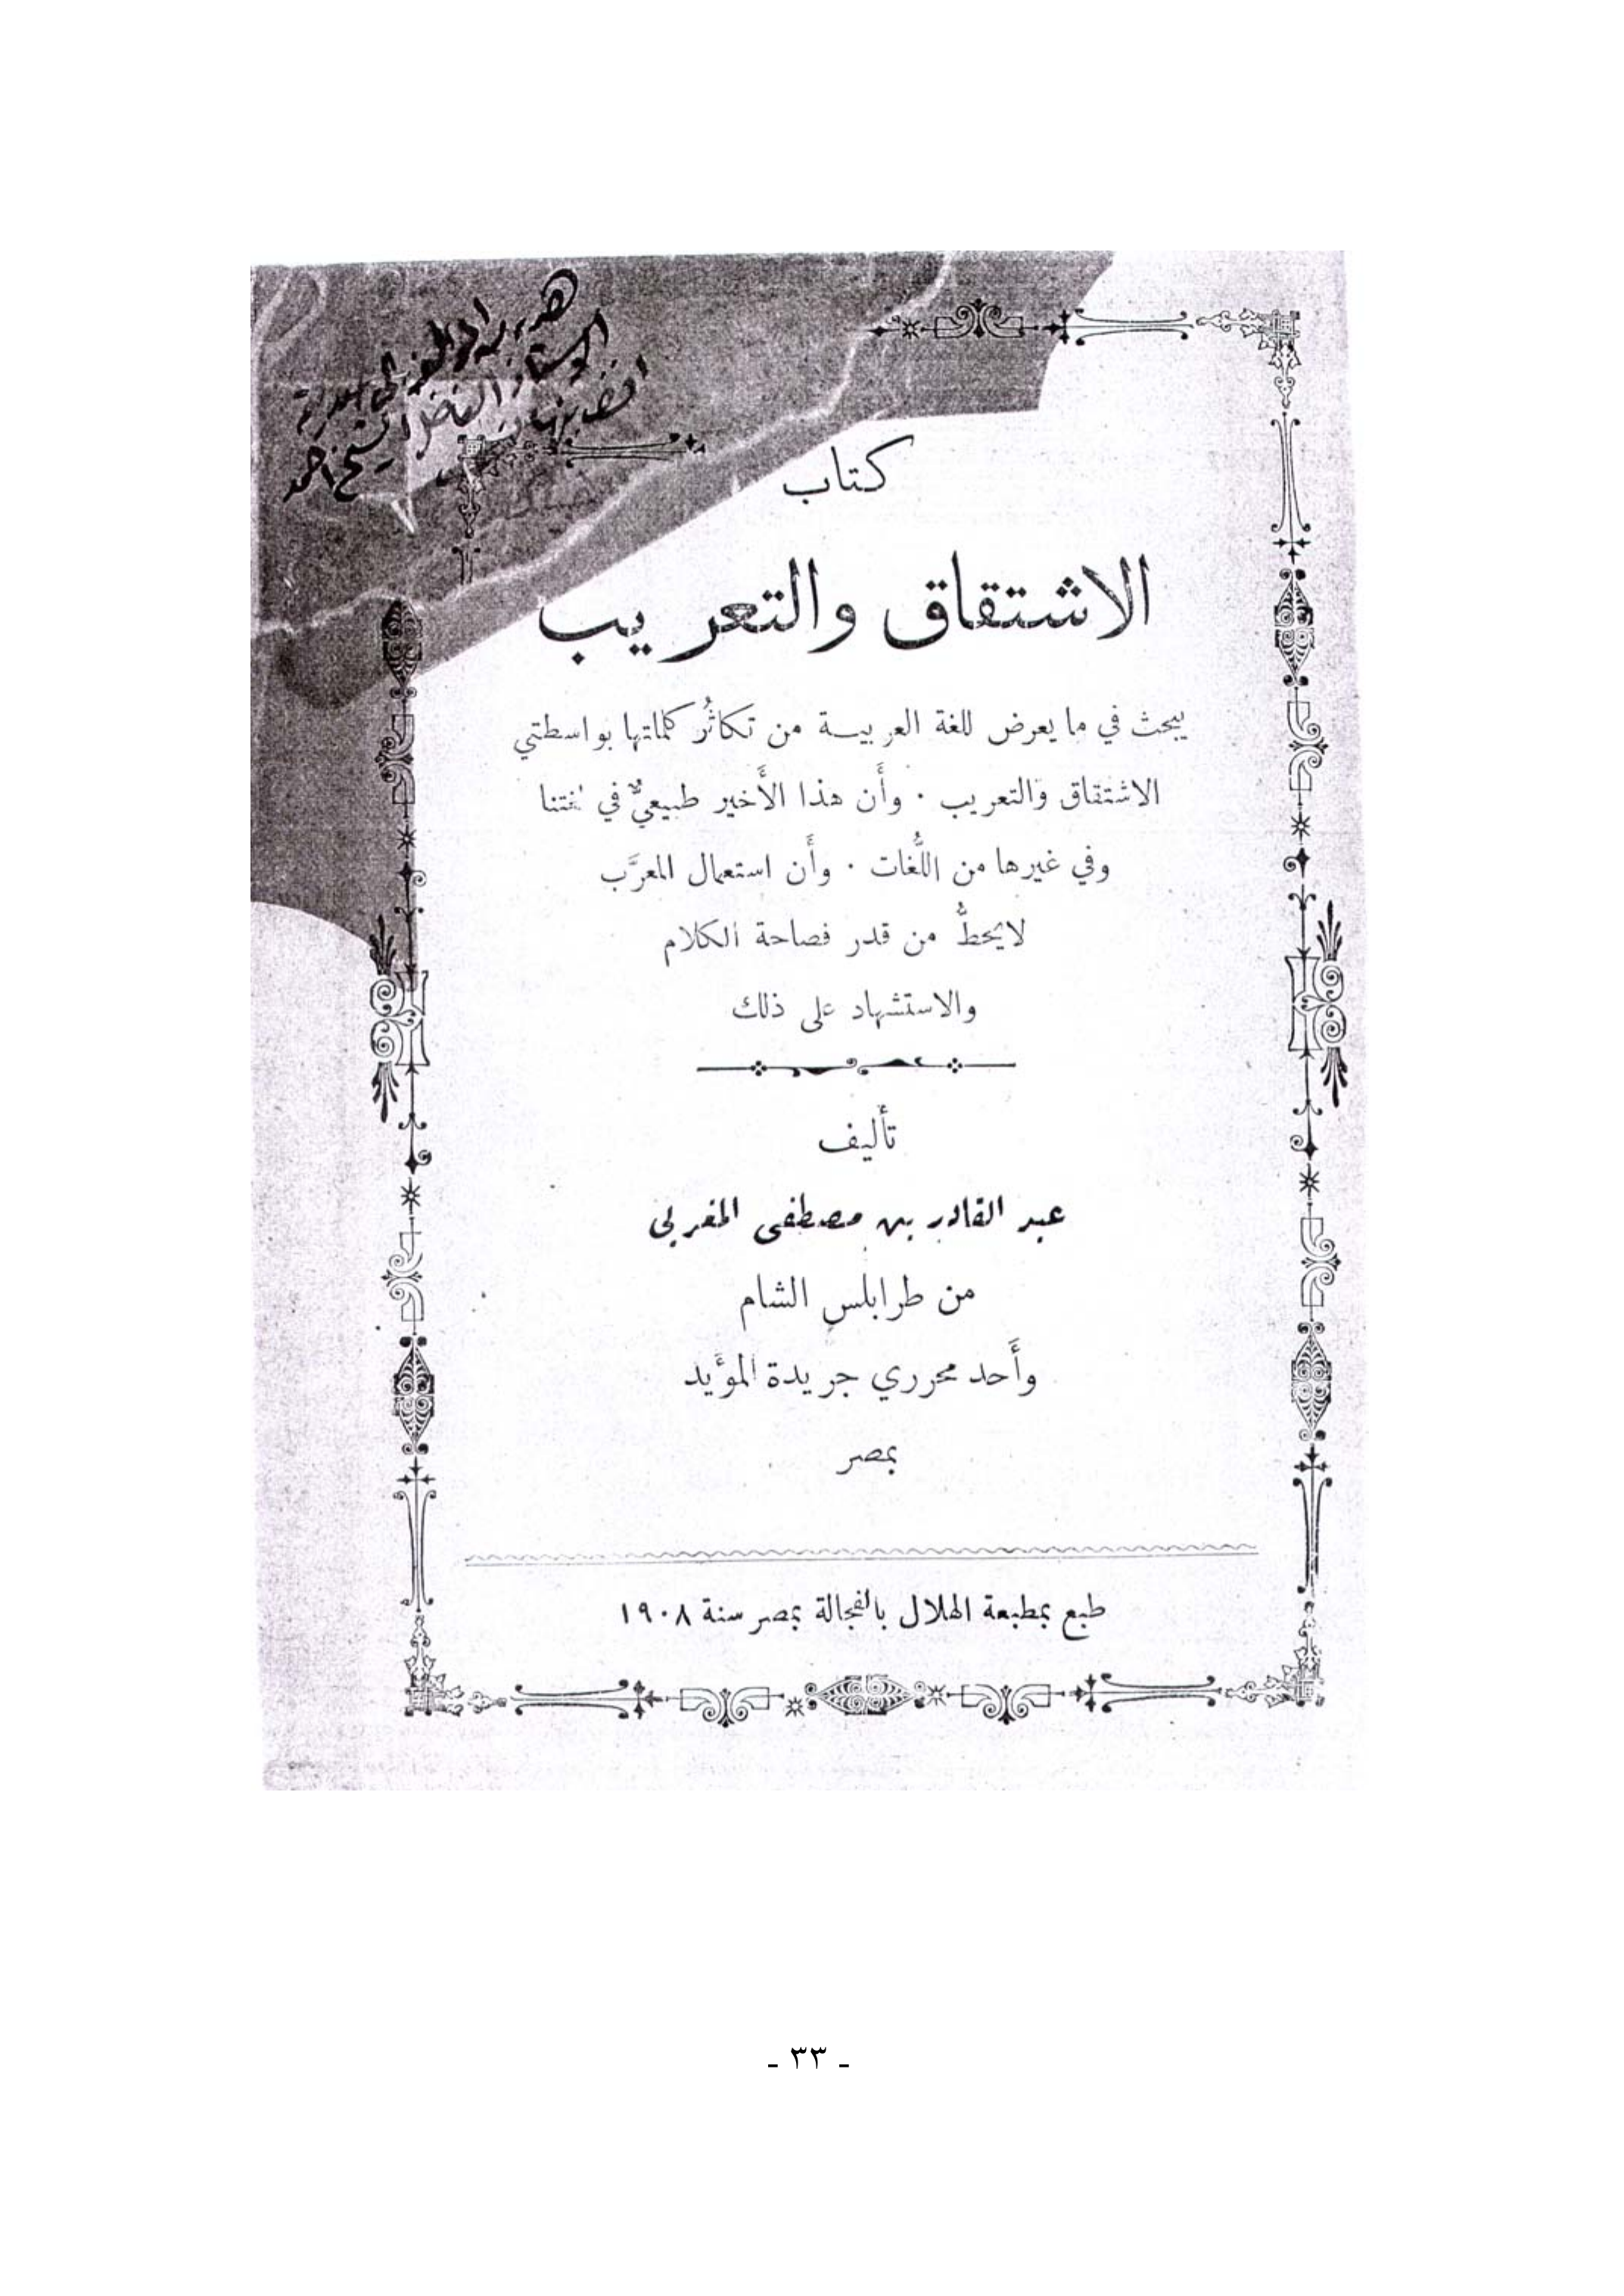 كتاب
الاشتقاق والتعريب
يبحث في ما يعرض للغة العربيـة من تكاثُر كلماتها بواسطتي
الاشتقاق والتعريب . وأَن هذا الأَخير طبيعيٌّ في لغتنا
وفي غيرها من اللُّغات . وأَن استعمال المعرَّب
لا يحطُّ من قدر فصاحة الكلام
والاستشهاد على ذلك
تأليف
عبد القادر بن مصطفى المغربي
من طرابلس الشام
وأَحد محرري جريدة المؤَيد
بمصر
طبع بمطبعة الهلال بالفجالة بمصر سنة ١٩٠٨
- ٣٣ -